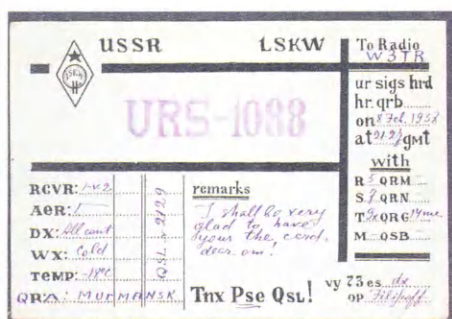 USSR LSKW
To Radio
W3TR
ur sigs hrd
hr. qrb
on 8 Feb. 1938
at 21.27 GMT
with
R 5 QRM
S 7 QRN
T 9x QRG 14 mc
M QSB
URS-1088
RCVR: 1-v-2
AER:
DX: All cont
WX: Cold
TEMP: -18°C
QRA: MURMANSK
QSL 2129
remarks
I shall be very
glad to have
your the, card,
dear om!
Tnx Pse QSL!
vy 73 es dx
OP Filipoff